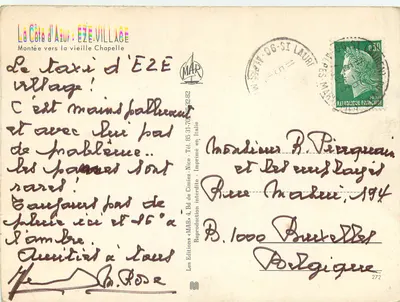 La Côte d'Azur - EZE-VILLAGE
Montée vers la vieille Chapelle
Le taxi d'EZE
village!
C'est moins polluant
et avec lui pas
de problème..
les pannes sont
rares!
Toujours pas de
pluie ici et 16° à
l'ombre.
Amitiés à tous
B. Rose
MAR
Les Editions «MAR» 4, Bd de Cimiez - Nice - Tél.
Reproduction interdite - Imprimé en Italie
06-ST LAURENT
0,30
REPUBLIQUE FRANCAISE
Monsieur R.
et les employés
Rue 194
B. 1000 Bruxelles
Belgique
272